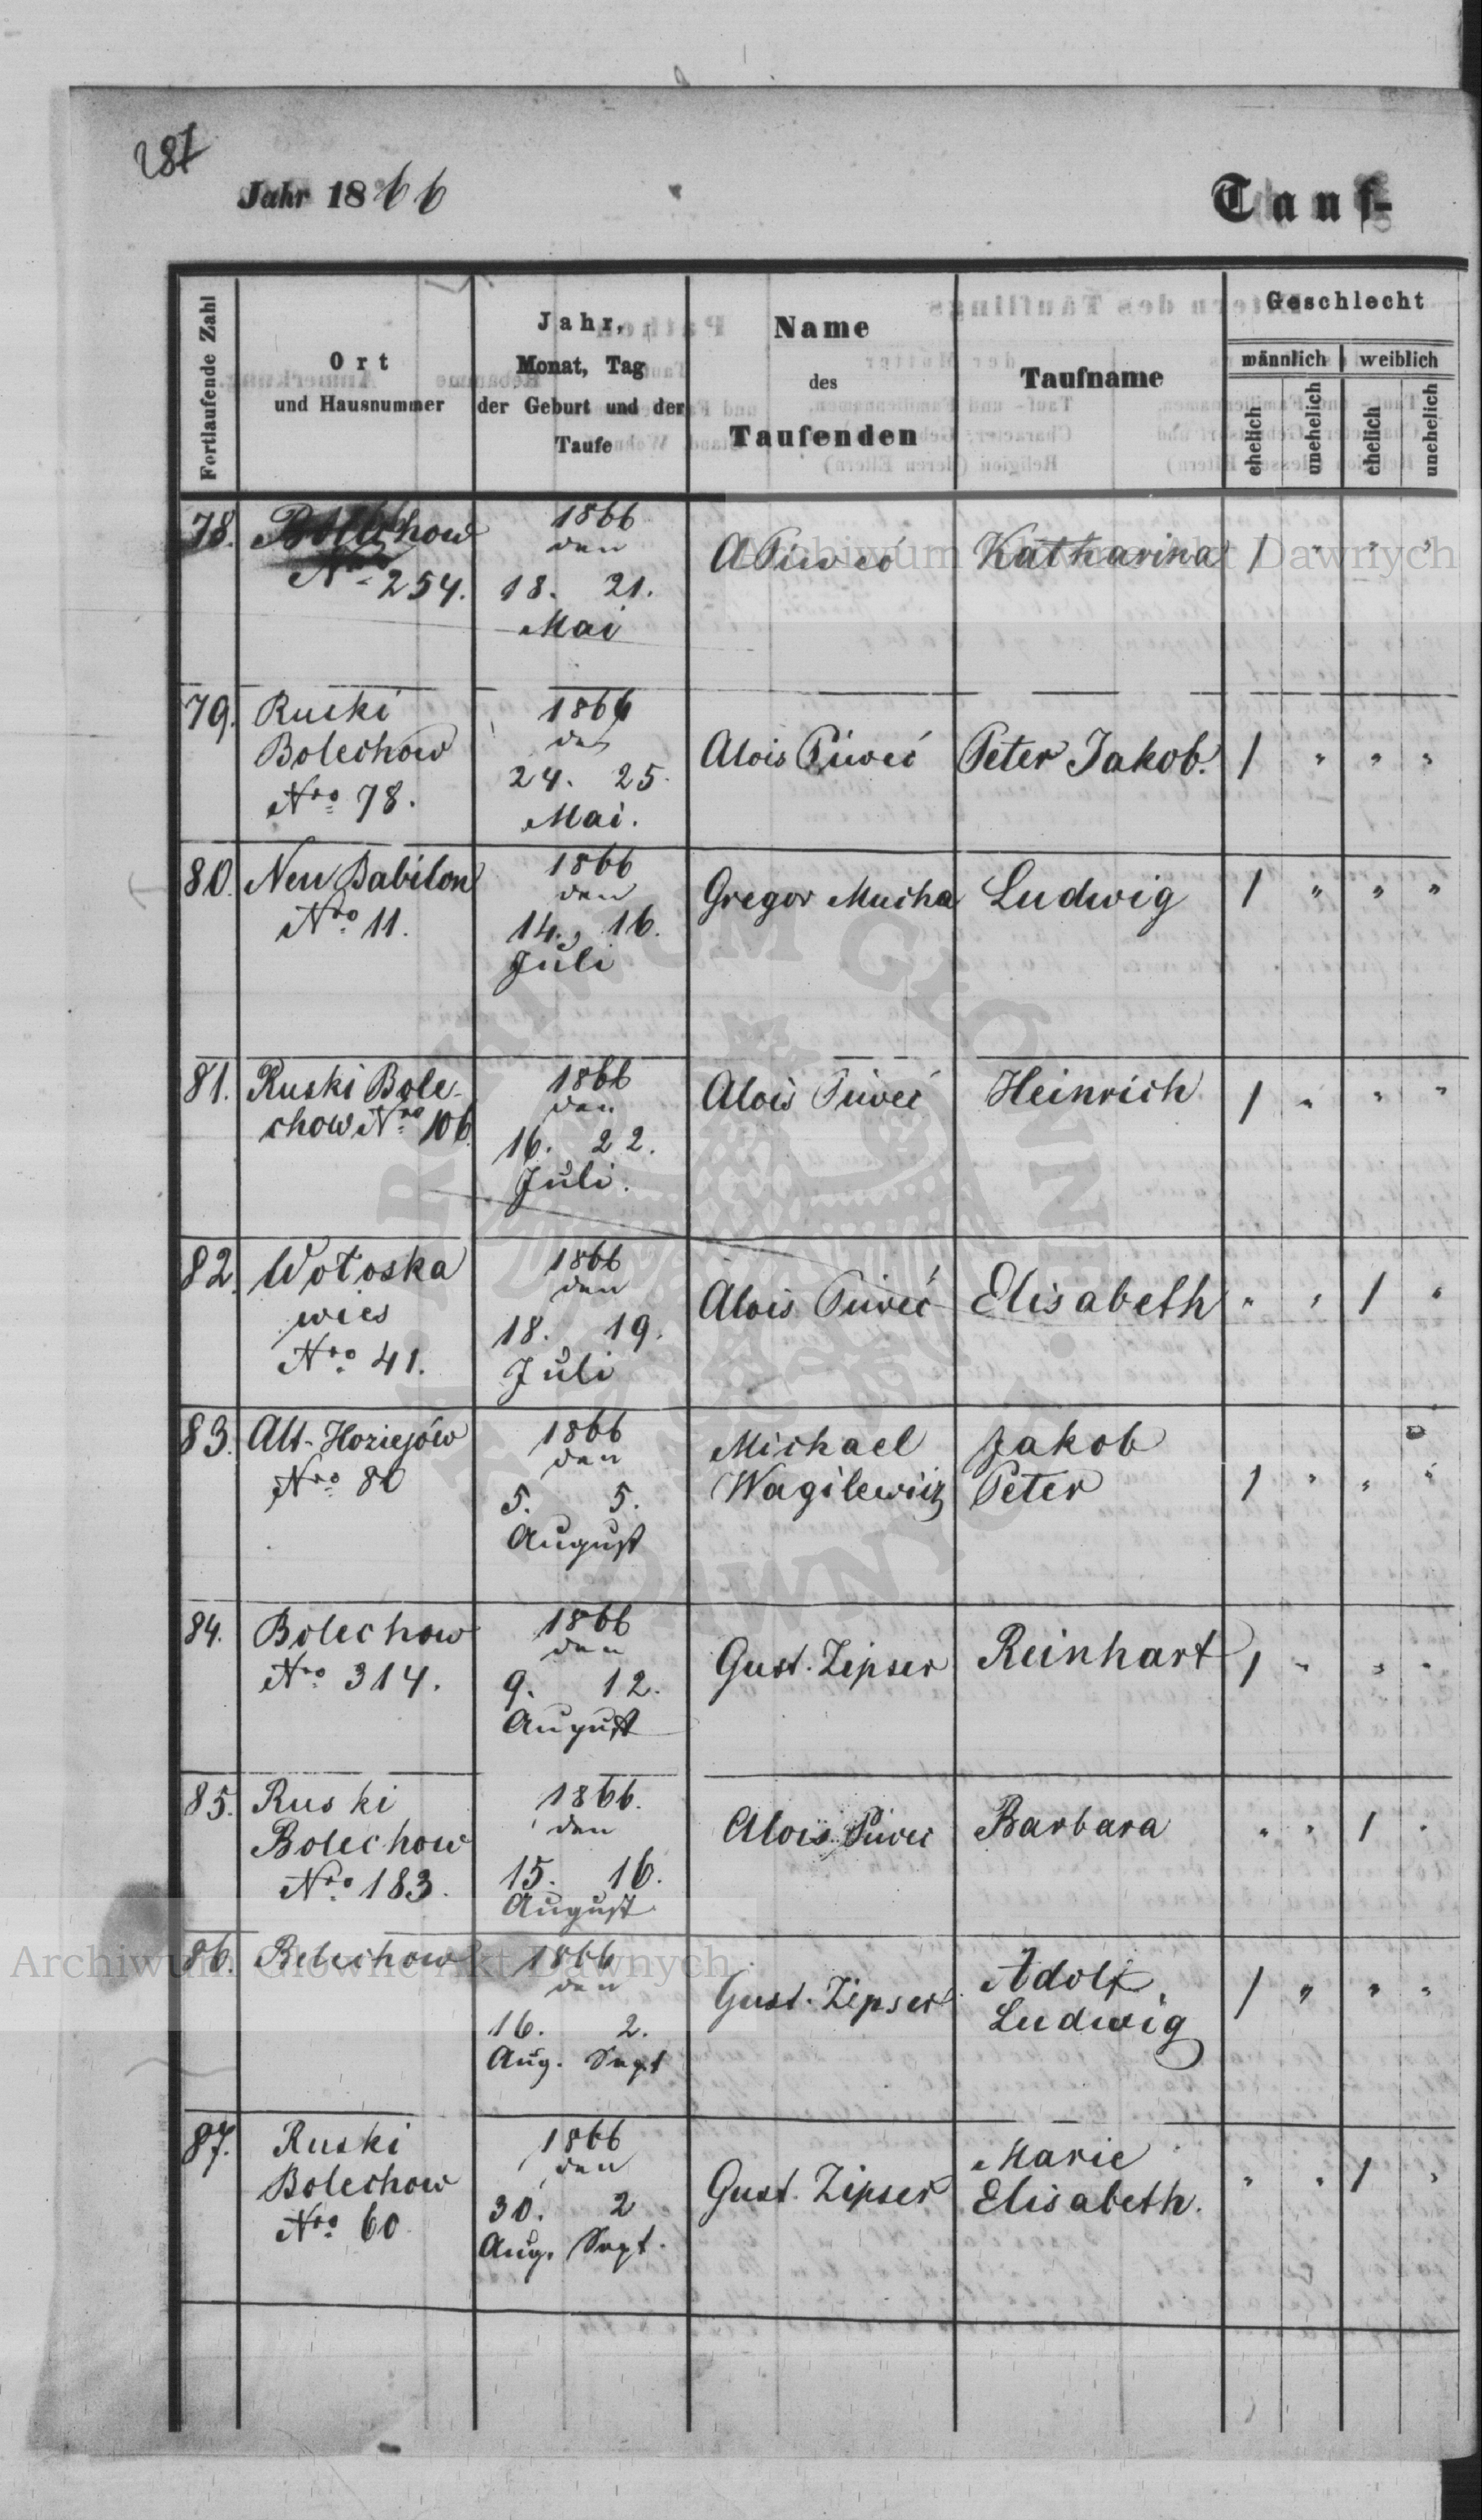 281
Jahr 1866
Tauf-
Fortlaufende Zahl
Ort
und Hausnummer
Jahr,
Monat, Tag
der Geburt und der
Taufe
Name
des
Taufenden
Taufname
Geschlecht
männlich
weiblich
ehelich
unehelich
ehelich
unehelich
78. Bolechow
Nro 254.
1866
den
18. 21.
Mai
A Piweć
Katharina
1 " " "
79. Ruski
Bolechow
Nro 78.
1866
den
24. 25.
Mai.
Alois Piweć
Peter Jakob.
1 " " "
80. Neu Babilon
Nro 11.
1866
den
14., 16.
Juli
Gregor Mucha
Ludwig
1 " " "
81. Ruski Bole-
chow Nro 106
1866
den
16. 22.
Juli.
Alois Piweć
Heinrich
1 " " "
82. Wołoska
wies
Nro 41.
1866
den
18. 19.
Juli
Alois Piweć
Elisabeth
" " 1 "
83. Alt-Hoziejów
Nro 80
1866
den
5. 5.
August
Michael
Wagilewicz
Jakob
Peter
1 " " "
84. Bolechow
Nro 314.
1866
den
9. 12.
August
Gust. Zipser
Reinhart
1 " " "
85. Ruski
Bolechow
Nro 183.
1866.
den
15. 16.
August
Alois Piwec
Barbara
" " 1 "
86. Bolechow
1866
den
16. 2.
Aug. Sept
Gust. Zipser
Adolf,
Ludwig
1 " " "
87. Ruski
Bolechow
Nro 60
1866
den
30. 2
Aug. Sept.
Gust. Zipser
Marie
Elisabeth.
" " 1 "
Archiwum Główne Akt Dawnych
Archiwum Główne Akt Dawnych
ARCHIWUM GŁÓWNE AKT DAWNYCH